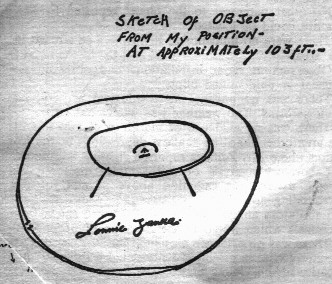 SKETCH OF OBJECT
FROM MY POSITION-
AT APPROXIMATELY 103 FT..-
Lonnie Zamora